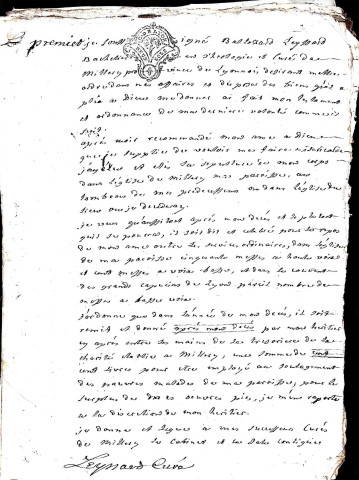 Le premier je soussigné Barthelard Leynard
Bachelier en Theologie et Curé de
Millery province de Lyonnois desirant mettre
ordre dans mes affaires et disposer des biens qu'il a
plu a Dieu me donner ai fait mon testament
et ordonnance de ma derniere volonté comme il
suit
apres avoir recommandé mon ame a dieu
que je supplie de vouloir me faire misericorde
j'eslis la sepulture de mon corps
dans l'eglise de Millery ma paroisse, au
tombeau de mes predecesseurs ou dans l'eglise du
lieu ou je decederay
je veux qu'aussitost apres mon decés et le plutost
qu'il se pourra, il soit dit et celebré pour le repos
de mon ame outre les services ordinaires, dans l'eglise
de ma paroisse cinquante messes a haute voix
et cent messes a voix basse, et dans le couvent
des grands capucins de Lyon pareil nombre de
messes a basse voix
j'ordonne que dans l'année de mon decés, il soit
remis et donné après mon decés par mon heritier
cy après entre les mains de la tresoriere de la
charité etablie a Millery, une somme de
cent livres pour etre employé au soulagement
des pauvres malades de ma paroisse, pour le
surplus des oeuvres pies, je m'en rapporte
a la discretion de mon heritier
je donne et legue a mes successeurs Curés
de Millery le Cabinet et
Leynard Curé